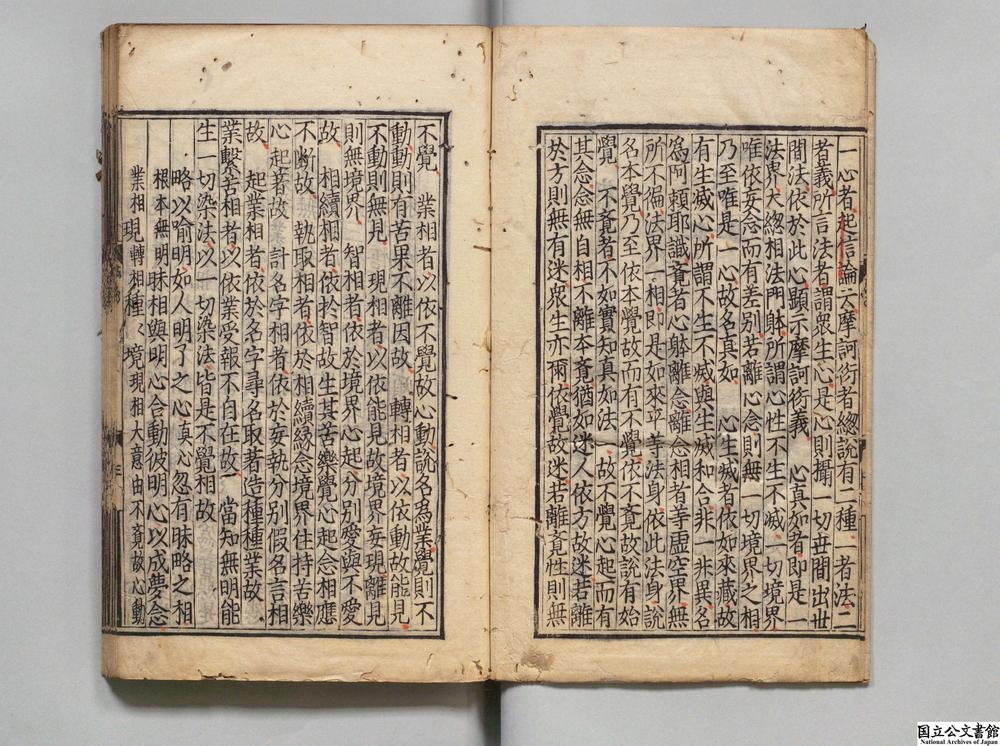 一心者起信論云摩訶衍者總說有二種一者法二
者義所言法者謂眾生心是心則攝一切世間出世
間法依於此心顯示摩訶衍義　心真如者即是一
法界大總相法門躰所謂心性不生不滅一切境界
唯依妄念而有差別若離心念則無一切境界之相
乃至唯是一心故名真如　心生滅者依如來藏故
有生滅心所謂不生不滅與生滅和合非一非異名
為阿賴耶識覺者心躰離念離念相者等虛空界無
所不徧法界一相即是如來平等法身依此法身說
名本覺乃至依本覺故而有不覺依不覚故說有始
覺　不覚者不如實知真如法一故不覺心起而有
其念念無自相不離本覚猶如迷人依方故迷若離
於方則無有迷眾生亦爾依覺故迷若離覚性則無
不覺　業相者以依不覺故心動說名為業覺則不
動動則有苦果不離因故　轉相者以依動故能見
不動則無見　現相者以依能見故境界妄現離見
則無境界　智相者依於境界心起分別愛與不愛
故　相續相者依於智故生其苦樂覺心起念相應
不断故　執取相者依於相續緣念境界住持苦樂
心起著故　計名字相者依於妄執分別假名言相
故　起業相者依於名字尋名取著造種種業故
業繫苦相者以依業受報不自在故　當知無明能
生一切染法以一切染法皆是不覺相故
略以喻明如人明了之心真心忽有昧略之相
根本無明昧相與明心合動彼明心以成夢念
業相現轉相種種境現相大意由不覚故心動
三
国立公文書館
National Archives of Japan